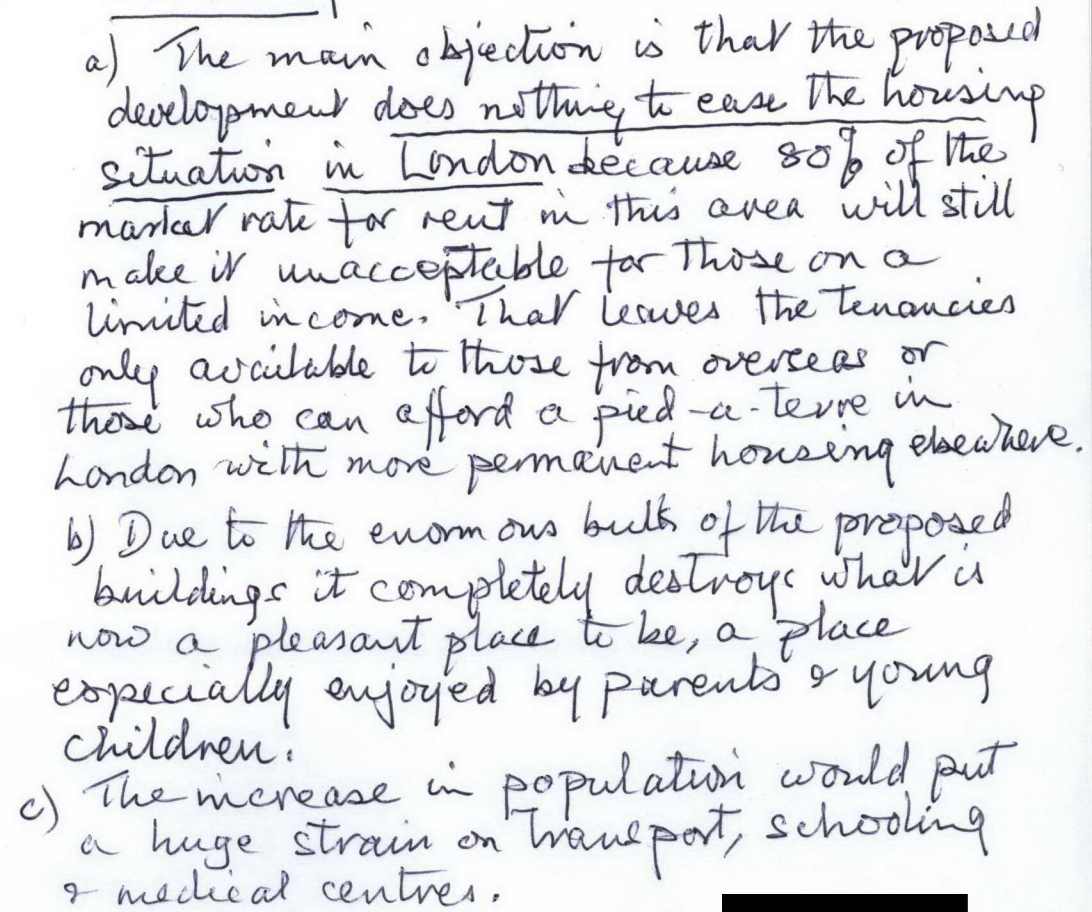 a) The main objection is that the proposed
development does nothing to ease the housing
situation in London because 80% of the
market rate for rent in this area will still
make it unacceptable for those on a
limited income. That leaves the tenancies
only available to those from overseas or
those who can afford a pied-a-terre in
London with more permanent housing elsewhere.
b) Due to the enormous bulk of the proposed
buildings it completely destroys what is
now a pleasant place to be, a place
especially enjoyed by parents & young
children.
c) The increase in population would put
a huge strain on transport, schooling
& medical centres.